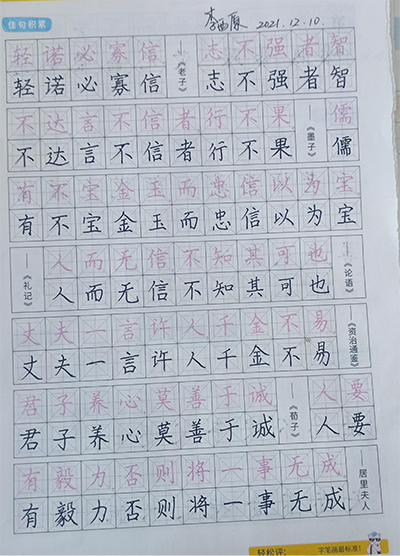 佳句积累
2021.12.10.
轻诺必寡信 ——《老子》 志不强者智
轻诺必寡信 志不强者智
不达言不信者行不果 ——《墨子》 儒
不达言不信者行不果 儒
有不宝金玉而忠信以为宝
有不宝金玉而忠信以为宝
——《礼记》 人而无信不知其可也 ——《论语》
人而无信不知其可也
丈夫一言许人千金不易 ——《资治通鉴》
丈夫一言许人千金不易
君子养心莫善于诚 ——《荀子》 人要
君子养心莫善于诚 人要
有毅力否则将一事无成 ——居里夫人
有毅力否则将一事无成
轻松评: 字笔画最标准!